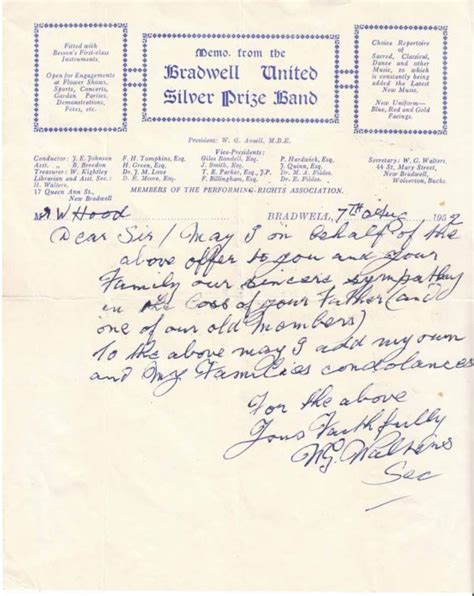 Fitted with
Besson's First-class
Instruments.
Open for Engagements
at Flower Shows,
Sports, Concerts,
Garden Parties,
Demonstrations,
Fêtes, etc.
Memo. from the
Bradwell United
Silver Prize Band
Choice Repertoire
of
Sacred, Classical,
Dance and other
Music, to which
is constantly being
added the Latest
New Music.
New Uniform—
Blue, Red and Gold
Facings.
President: W. G. Ansell, M.B.E.
Vice-Presidents:
Conductor: J. E. Johnson
Asst. „ A. Breedon
Treasurer: W. Kightley
Librarian and Asst. Sec.:
H. Walters.
17 Queen Ann St.,
New Bradwell
F. H. Tompkins, Esq.
H. E. Meacham, Esq.
Dr. J. M. Love
D. E. Moore, Esq.
Giles Randall, Esq.
J. Thorneycroft, Esq.
T. E. Parker, Esq., J.P.
P. Billingham, Esq.
P. Hardwick, Esq.
J. Quinn, Esq.
Dr. M. A. Fildes.
Dr. E. Fildes.
Secretary: W. G. Walters.
44 St. Mary Street
New Bradwell,
Wolverton, Bucks.
MEMBERS OF THE PERFORMING-RIGHTS ASSOCIATION.
W Hood
BRADWELL, 7th 1952
Dear Sir/ May I on behalf of the
above offer to you and your
Family our sincere sympathy
in the Loss of your Father (and
one of our old Members)
To the above may I add my own
and My Families condolances
For the above
Yours Faithfully
W G Walters
Sec